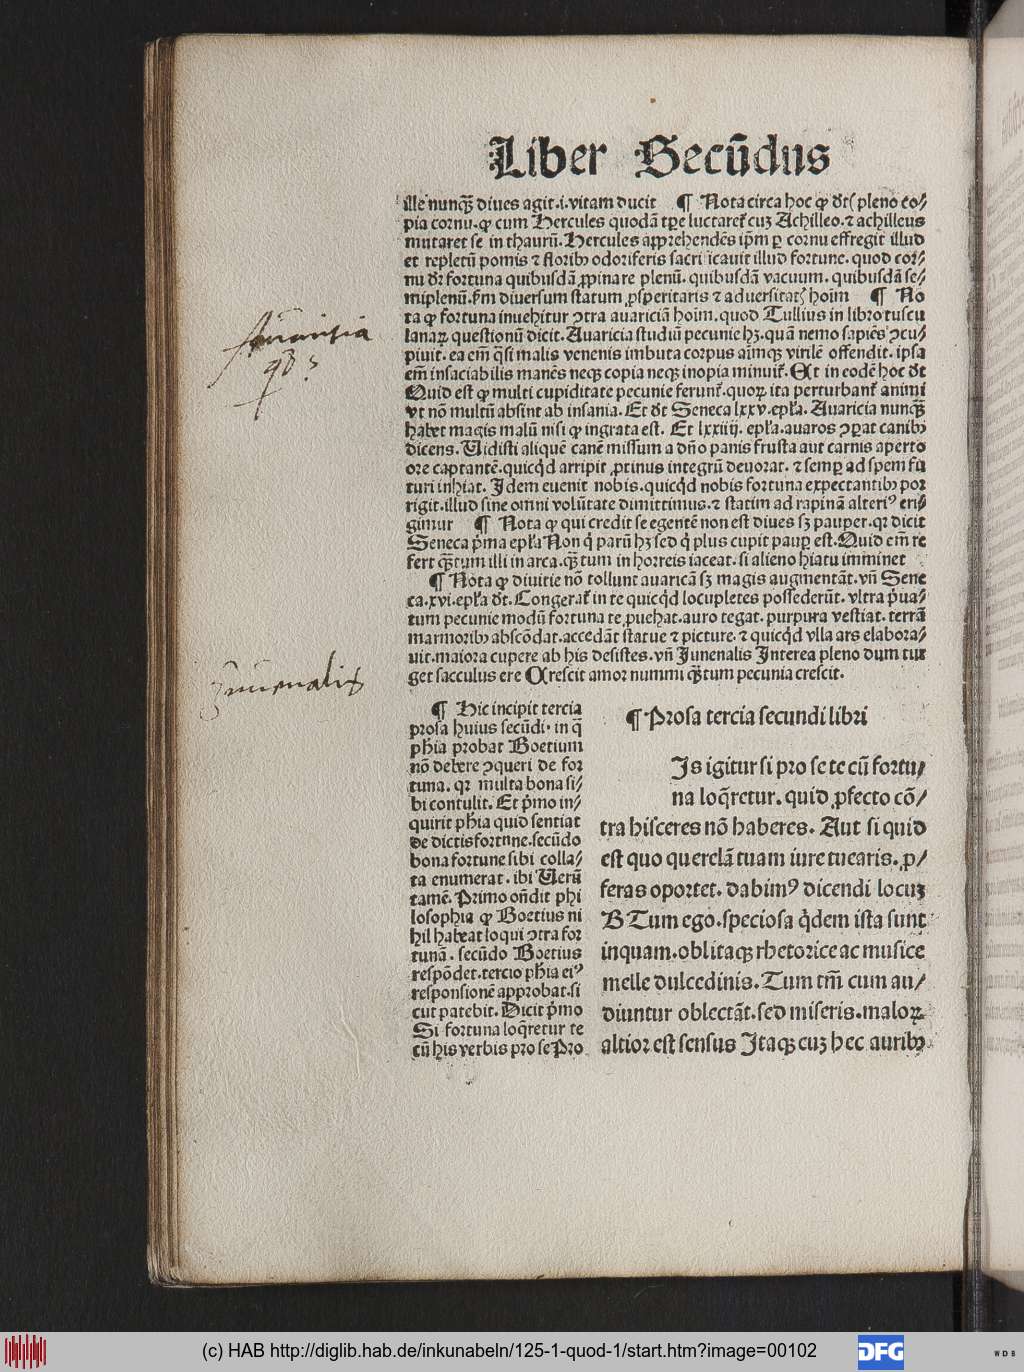 Liber Secūdus
ille nunq̄ȝ diues agit .i. vitam ducit ¶ Nota circa hoc ꝙ dt̄ pleno co/
pia cornu. ꝙ cum Hercules quodā tp̄e luctaret᷑ cuȝ Achilleo. ⁊ achilleus
mutaret se in thaurū. Hercules apprehendēs ip̄m ꝑ cornu effregit illud
et repletū pomis ⁊ floribꝰ odoriferis sacrificauit illud fortune. quod cor/
nu dr̄ fortuna quibusdā ꝓpinare plenū. quibusdā vacuum. quibusdā se/
miplenū. fm̄ diuersum statum ꝓsperitatis ⁊ aduersitat hoīm ¶ No
ta ꝙ fortuna inuehitur ꝯtra auariciā hoīm. quod Tullius in libro tuscu
lanaꝝ questionū dicit. Auaricia studiū pecunie hȝ. quā nemo sapiēs ꝯcu
piuit. ea em̄ q̄si malis venenis imbuta corpus aīmqȝ virilē offendit. ipsa
em̄ insaciabilis manēs neqȝ copia neqȝ inopia minuit᷑. Et in eodē hoc dt̄
Quid est ꝙ multi cupiditate pecunie ferunt᷑. quoꝝ ita perturbant᷑ animi
vt nō multū absint ab insania. Et dt̄ Seneca lxxv. ep̄la. Auaricia nunq̄ȝ
habet magis malū nisi ꝙ ingrata est. Et lxxiiij. ep̄la. auaros ꝯꝑat canibꝰ
dicens. Uidisti aliquē canē missum a dn̄o panis frusta aut carnis aperto
ore captantē. quicq̇d arripit ꝓtinus integrū deuorat. ⁊ semꝑ ad spem fu
turi inhiat. Idem euenit nobis. quicq̇d nobis fortuna expectantibꝰ por
rigit. illud sine omni volūtate dimittimus. ⁊ statim ad rapinā alteriꝰ eri/
gimur ¶ Nota ꝙ qui credit se egentē non est diues sȝ pauper. qꝛ dicit
Seneca p̄ma ep̄la Non q̇ parū hȝ sed q̇ plus cupit pauꝑ est. Quid em̄ re
fert q̄ȝtum illi in arca. q̄ȝtum in horreis iaceat. si alieno hiatu imminet
¶ Nota ꝙ diuitie nō tollunt auaricā sȝ magis augmentāt. vn̄ Sene
ca. xvi. ep̄la dt̄. Congerat᷑ in te quicq̇d locupletes possederūt. vltra p̄ua/
tum pecunie modū fortuna te ꝓuehat. auro tegat. purpura vestiat. terrā
marmoribꝰ abscōdat. accedāt statue ⁊ picture. ⁊ quicq̇d vlla ars elabora/
uit. maiora cupere ab his desistes. vn̄ Juuenalis Interea pleno dum tur
get sacculus ere Crescit amor nummi q̄ȝtum pecunia crescit.
Auaritia
qd ?
Juuenalis
¶ Hic incipit tercia
prosa huius secūdi. in q̄
ph̄ia probat Boetium
nō debere ꝯqueri de for
tuna. qꝛ multa bona si/
bi contulit. Et p̄mo in/
quirit ph̄ia quid sentiat
de dictis fortune. secūdo
bona fortune sibi colla/
ta enumerat. ibi Uerū
tamē. Primo on̄dit phi
losophia ꝙ Boetius ni
hil habeat loqui ꝯtra for
tunā. secūdo Boetius
respōdet. tercio ph̄ia eiꝰ
responsionē approbat. si
cut patebit. Dicit p̄mo
Si fortuna loq̄retur te
cū his verbis pro se Pro
¶ Prosa tercia secundi libri
Is igitur si pro se te cū fortu/
na loq̄retur. quid ꝓfecto cō/
tra hisceres nō haberes. Aut si quid
est quo querelā tuam iure tuearis. ꝓ/
feras oportet. dabimꝰ dicendi locuȝ
B Tum ego. speciosa q̇dem ista sunt
inquam. oblitaqȝ rhetorice ac musice
melle dulcedinis. Tum tm̄ cum au/
diuntur oblectāt. sed miseris. maloꝝ
altior est sensus Itaqȝ cuȝ hec auribꝰ
(c) HAB http://diglib.hab.de/inkunabeln/125-1-quod-1/start.htm?image=00102
DFG
WDB